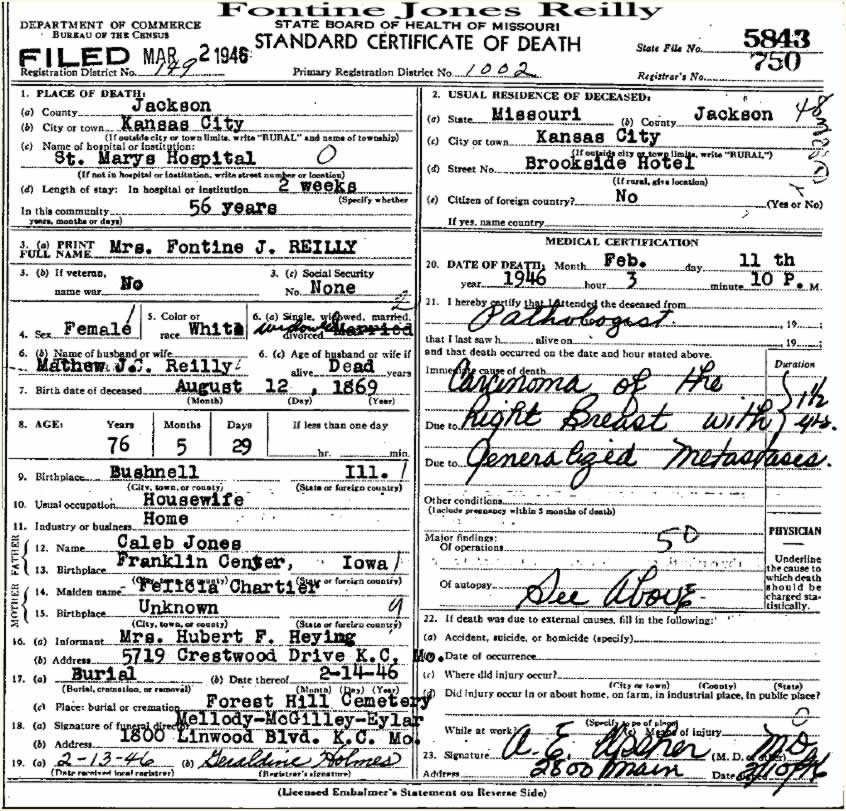 Fontine Jones Reilly
DEPARTMENT OF COMMERCE
BUREAU OF THE CENSUS
STATE BOARD OF HEALTH OF MISSOURI
STANDARD CERTIFICATE OF DEATH
FILED MAR 2 1946
State File No. 5843
Registration District No. 149
Primary Registration District No. 1002
Registrar's No. 750
1. PLACE OF DEATH:
(a) County Jackson
(b) City or town Kansas City
(If outside city or town limits, write "RURAL" and name of township)
(c) Name of hospital or institution:
St. Marys Hospital 0
(If not in hospital or institution, write street number or location)
(d) Length of stay: In hospital or institution 2 weeks
(Specify whether
In this community 56 years
years, months or days)
3. (a) PRINT FULL NAME Mrs. Fontine J. REILLY
3. (b) If veteran, name war No
3. (c) Social Security No. None
4. Sex Female 1
5. Color or race White
6. (a) Single, widowed, married, divorced widowed Married 2
6. (b) Name of husband or wife Mathew J. Reilly
6. (c) Age of husband or wife if alive Dead years
7. Birth date of deceased August 12, 1869
(Month) (Day) (Year)
8. AGE: Years Months Days If less than one day
76 5 29 hr. min.
9. Birthplace Bushnell Ill. 1
(City, town, or county) (State or foreign country)
10. Usual occupation Housewife
11. Industry or business Home
FATHER
12. Name Caleb Jones
13. Birthplace Franklin Center, Iowa 1
(City, town, or county) (State or foreign country)
MOTHER
14. Maiden name Felicia Chartier
15. Birthplace Unknown 9
(City, town, or county) (State or foreign country)
16. (a) Informant Mrs. Hubert F. Heying
(b) Address 5719 Crestwood Drive K.C. Mo.
17. (a) Burial (b) Date thereof 2-14-46
(Burial, cremation, or removal) (Month) (Day) (Year)
(c) Place: burial or cremation Forest Hill Cemetery
18. (a) Signature of funeral director Mellody-McGilley-Eylar
(b) Address 1800 Linwood Blvd. K.C. Mo.
19. (a) 2-13-46 (b) Geraldine Holmes
(Date received local registrar) (Registrar's signature)
2. USUAL RESIDENCE OF DECEASED:
(a) State Missouri (b) County Jackson 48
(c) City or town Kansas City
(If outside city or town limits, write "RURAL")
(d) Street No. Brookside Hotel
(If rural, give location)
(e) Citizen of foreign country? No (Yes or No)
If yes, name country
MEDICAL CERTIFICATION
20. DATE OF DEATH: Month Feb. day 11 th
year 1946 hour 3 minute 10 P. M.
21. I hereby certify that I attended the deceased from
Pathologist, 19
that I last saw h alive on , 19
and that death occurred on the date and hour stated above.
Duration
Immediate cause of death Carcinoma of the
Due to Right Breast with 1 1/2 yrs.
Due to Generalized Metastases.
Other conditions
(Include pregnancy within 3 months of death)
Major findings:
Of operations 50
Of autopsy See Above
PHYSICIAN
Underline the cause to which death should be charged statistically.
22. If death was due to external causes, fill in the following:
(a) Accident, suicide, or homicide (specify)
(b) Date of occurrence
(c) Where did injury occur?
(City or town) (County) (State)
(d) Did injury occur in or about home, on farm, in industrial place, in public place?
(Specify type of place) 0
While at work? (e) Means of injury
23. Signature A. E. Upsher (M. D. or other) MD
Address 2800 Main Date signed
(Licensed Embalmer's Statement on Reverse Side)